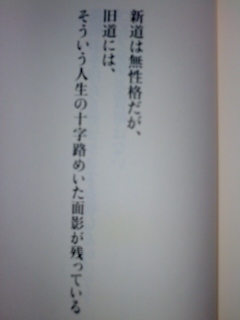 新道は無性格だが、
旧道には、
そういう人生の十字路めいた面影が残っている